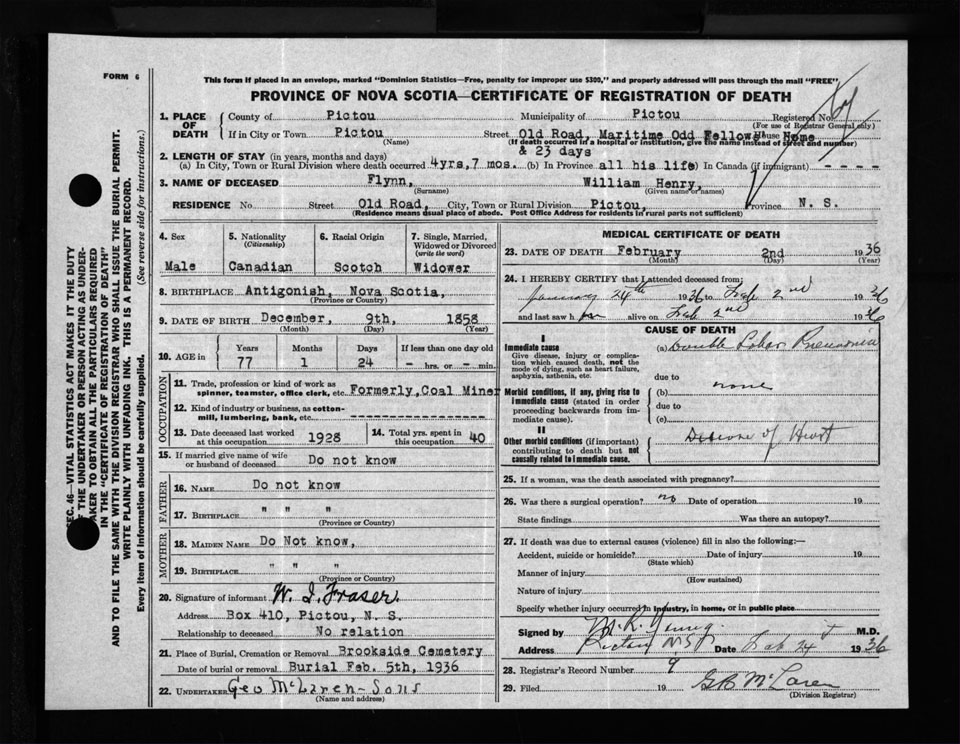 FORM 6
This form if placed in an envelope, marked "Dominion Statistics—Free, penalty for improper use $300," and properly addressed will pass through the mail "FREE".
PROVINCE OF NOVA SCOTIA—CERTIFICATE OF REGISTRATION OF DEATH
SEC. 46—VITAL STATISTICS ACT MAKES IT THE DUTY
OF THE UNDERTAKER OR PERSON ACTING AS UNDER-
TAKER TO OBTAIN ALL THE PARTICULARS REQUIRED
IN THE "CERTIFICATE OF REGISTRATION OF DEATH"
AND TO FILE THE SAME WITH THE DIVISION REGISTRAR WHO SHALL ISSUE THE BURIAL PERMIT.
WRITE PLAINLY WITH UNFADING INK. THIS IS A PERMANENT RECORD.
Every item of information should be carefully supplied. (See reverse side for instructions.)
1. PLACE OF DEATH County of Pictou Municipality of Pictou Registered No.
(For use of Registrar General only)
If in City or Town Pictou Street Old Road, Maritime Odd Fellows Home House No.
(Name) (If death occurred in a hospital or institution, give the name instead of street and number)
2. LENGTH OF STAY (in years, months and days) & 23 days
(a) In City, Town or Rural Division where death occurred 4yrs, 7 mos. (b) In Province all his life) In Canada (if immigrant) - - - -
3. NAME OF DECEASED Flynn, William Henry,
(Surname) (Given name or names)
RESIDENCE No. Street Old Road, City, Town or Rural Division Pictou, Province N. S.
(Residence means usual place of abode. Post Office Address for residents in rural parts not sufficient)
4. Sex Male
5. Nationality (Citizenship) Canadian
6. Racial Origin Scotch
7. Single, Married, Widowed or Divorced (write the word) Widower
8. BIRTHPLACE Antigonish, Nova Scotia,
(Province or Country)
9. DATE OF BIRTH December, 9th, 1858
(Month) (Day) (Year)
10. AGE in Years 77 Months 1 Days 24 If less than one day old - hrs. or - min.
OCCUPATION
11. Trade, profession or kind of work as spinner, teamster, office clerk, etc. Formerly, Coal Miner
12. Kind of industry or business, as cotton-mill, lumbering, bank, etc. - - - - - - - -
13. Date deceased last worked at this occupation 1928
14. Total yrs. spent in this occupation 40
15. If married give name of wife or husband of deceased Do not know
FATHER
16. NAME Do not know
17. BIRTHPLACE " " "
(Province or Country)
MOTHER
18. MAIDEN NAME Do Not know,
19. BIRTHPLACE " " "
(Province or Country)
20. Signature of informant W. I. Fraser.
Address Box 410, Pictou, N. S.
Relationship to deceased No relation
21. Place of Burial, Cremation or Removal Brookside Cemetery
Date of burial or removal Burial Feb. 5th, 1936
22. UNDERTAKER Geo McLaren-Sons
(Name and address)
MEDICAL CERTIFICATE OF DEATH
23. DATE OF DEATH February 2nd 1936
(Month) (Day) (Year)
24. I HEREBY CERTIFY that I attended deceased from:
January 24th 1936 to Feb 2nd 1936
and last saw him alive on Feb 2nd 1936
CAUSE OF DEATH
I
Immediate cause (a) Double Lobar Pneumonia
Give disease, injury or complication which caused death, not the mode of dying, such as heart failure, asphyxia, asthenia, etc.
due to
Morbid conditions, if any, giving rise to immediate cause (stated in order proceeding backwards from immediate cause).
(b) none
due to
(c)
II
Other morbid conditions (if important) contributing to death but not causally related to immediate cause.
Disease of Heart
25. If a woman, was the death associated with pregnancy?
26. Was there a surgical operation? no Date of operation 19
State findings Was there an autopsy?
27. If death was due to external causes (violence) fill in also the following:—
Accident, suicide or homicide? Date of injury 19
(State which)
Manner of injury
(How sustained)
Nature of injury
Specify whether injury occurred in industry, in home, or in public place
Signed by Young M.D.
Address Pictou N.S. Date Feb 24 1936
28. Registrar's Record Number 9
29. Filed 19 GB McLaren
(Division Registrar)